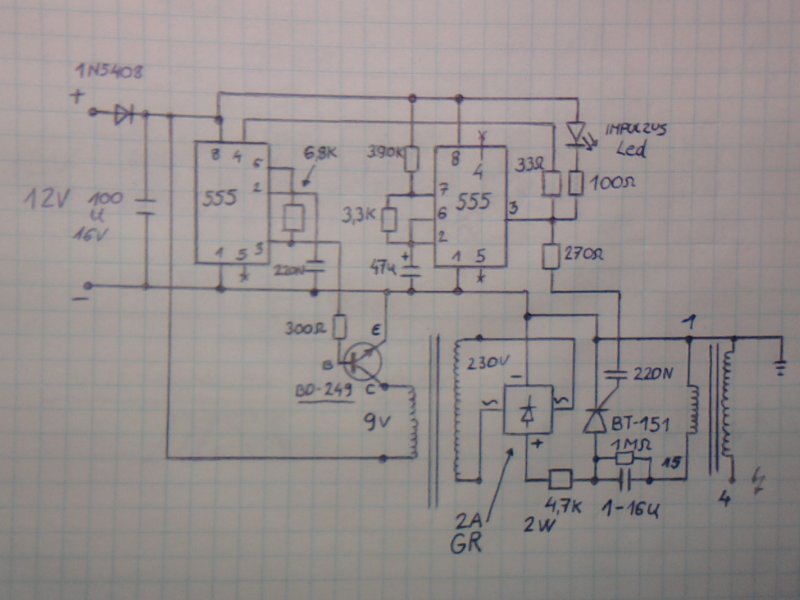 1N5408
+
12V
100
U
16V
−
8 4
6
2
3
555
1 5
*
6,8K
220N
390K
3,3K
47U
+
*
8 4
7
6
2
3
555
1 5
*
33Ω
IMPULZUS
Led
100Ω
270Ω
300Ω
B
E
C
BD-249
9V
230V
−
~
~
+
2A
GR
4,7K
2W
220N
BT-151
1MΩ
1-16U
1
15
4